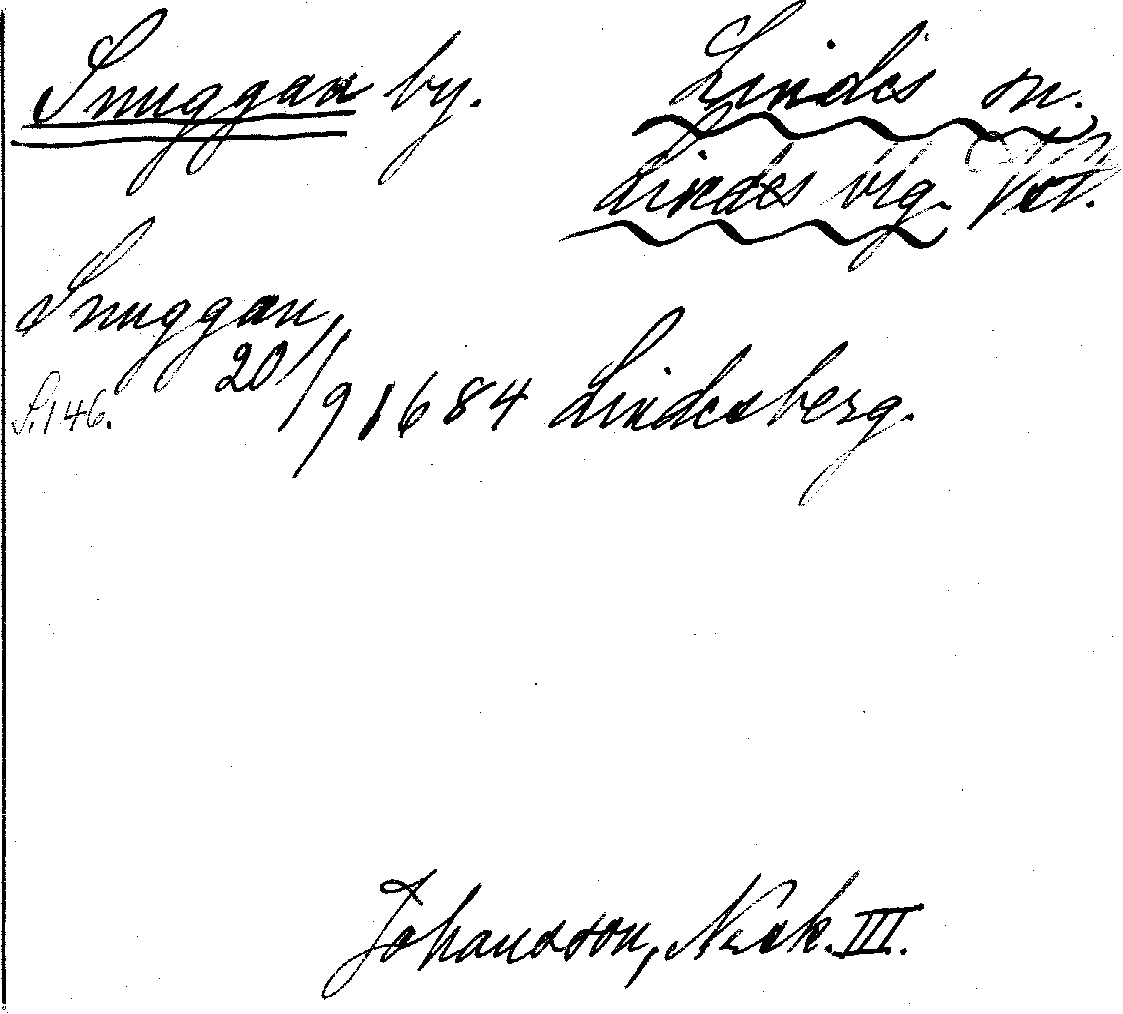 Snuggan by. Lindes sn.
Lindes blg. Vstm.
Snuggan
20/9 1684 Lindesberg.
S. 146.
Johansson, Nosk. III.